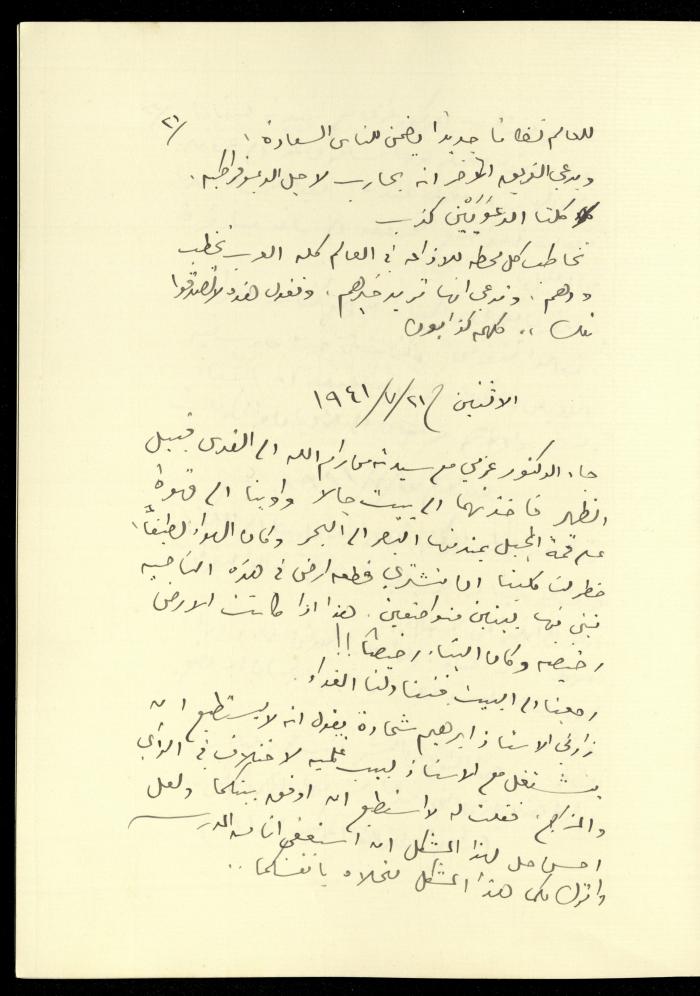 ٢١/
للعالم نظاماً جديداً يضمن للناس السعادة!
ويدعي الفريق الآخر انه يحارب لاجل الديموقراطية.
كلتا الدعوَيَيْن كذب
تخاطب كل محطه للاذاعه في العالم كله العرب تخطب
ودهم. وتدعي انها تريد خيرهم. وتقول هذه لا تصدقوا
تلك .. كلهم كذابون
الاثنين ٢١/٧/١٩٤١
جاء الدكتور عزمي مع سيدته من رام الله الى القدس قبيل
الظهر فاخذتهما الى بيت جالا واوينا الى قهوة
على قمة الجبل يمتد منها البصر الى البحر وكان الهواء لطيفاً.
خطر لنا كلينا ان نشتري قطعة ارض في هذه الناحيه
نبني فيها بيتين متواضعين. هذا اذا كانت الارض
رخيصه وكان البناء رخيصاً!!
رجعنا الى البيت فتناولنا الغداء.
زارني الاستاذ ابرهيم شحادة يقول انه لا يستطيع ان
يشتغل مع الاستاذ لبيب غلميه لاختلاف في الرأي
والمزاج. فقلت له لا استطيع ان اوفق بينكما ولعل
احسن حل لهذا المشكل ان استعفي انا من المدرسه
واترك لكما هذا المشكل تحلانه بانفسكما..